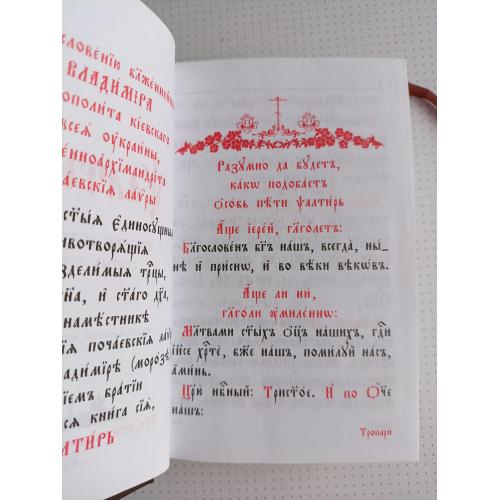 словенїю блаженнѣй
ВЛАДИ́МІРА
ополи́та кі́евскаго
всея̀ ѹкраи́ны,
е́нноархїмандри́та
ча́евскїѧ ла́vры
ст҃ы́ѧ є҆диносу́щны
ивотворѧ́щїѧ
здели́мыѧ трⷪ҇цы,
сн҃а, и҆ ст҃а́гѡ дх҃а,
намѣ́стникѣ
їѧ поча́евскїѧ ла́v
лади́мірѣ (моро́з
їемъ бра́тїи
сѧ кни́га сїѧ̀,
ЛТИ́РЬ
Разу́мно да бꙋ́детъ,
ка́кѡ подоба́етъ
ѻ҆со́бь пѣ́ти ѱалти́рь
А҆́ще і҆ере́й, глаго́летъ:
Бл҃гослове́нъ бг҃ъ на́шъ, всегда̀, ны́-
нѣ и҆ при́снѡ, и҆ во вѣ́ки вѣкѡ́въ.
А҆́ще ли нѝ,
глаго́ли ᲂу҆миле́ннѡ:
Мл҃твами ст҃ы́хъ ѻ҆ц҃ъ на́шихъ, гдⷭ҇и
і҆и҃се хрⷭ҇тѐ, бж҃е на́шъ, поми́лꙋй на́съ,
а҆ми́нь.
Цр҃ю̀ нбⷭ҇ный: Трист҃о́е. И҆ по Ѻ҆́ч҃е
на́шъ:
Тропари